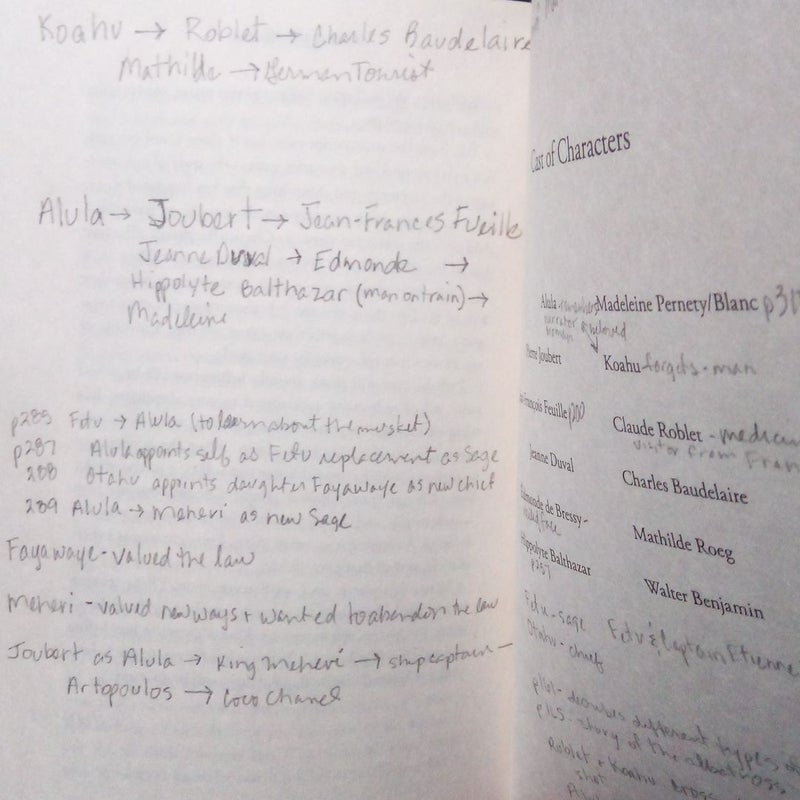 Koahu → Roblet → Charles Baudelaire
Mathilde → German Tourist
Alula → Joubert → Jean-Frances Fueille
Jeanne Duval → Edmonde →
Hippolyte Balthazar (man on train) →
Madeleine
p285 Fetu → Alula (to learn about the musket)
p287 Alula appoints self as Fetu replacement as Sage
288 Otahu appoints daughter Fayawaye as new chief
289 Alula → Mehevi as new Sage
Fayawaye - valued the law
Mehevi - valued new ways + wanted to abandon the law
Joubert as Alula → King Mehevi → ship captain -
Artopoulos → Coco Chanel
Cast of Characters
Alula - remembers
narrator & beloved
woman
Pierre Joubert
François Feuille p200
Jeanne Duval
Edmonde de Bressy -
Hippolyte Balthazar
p257
Fetu - sage
Otahu - chief
Madeleine Pernety/Blanc p31
Koahu - forgets - man
Claude Roblet -
visitor from
Charles Baudelaire
Mathilde Roeg
Walter Benjamin
Fetu & Captain Etienne
p161 - describes different types of
p165 - story of the albatross
Roblet + Koahu cross
shot